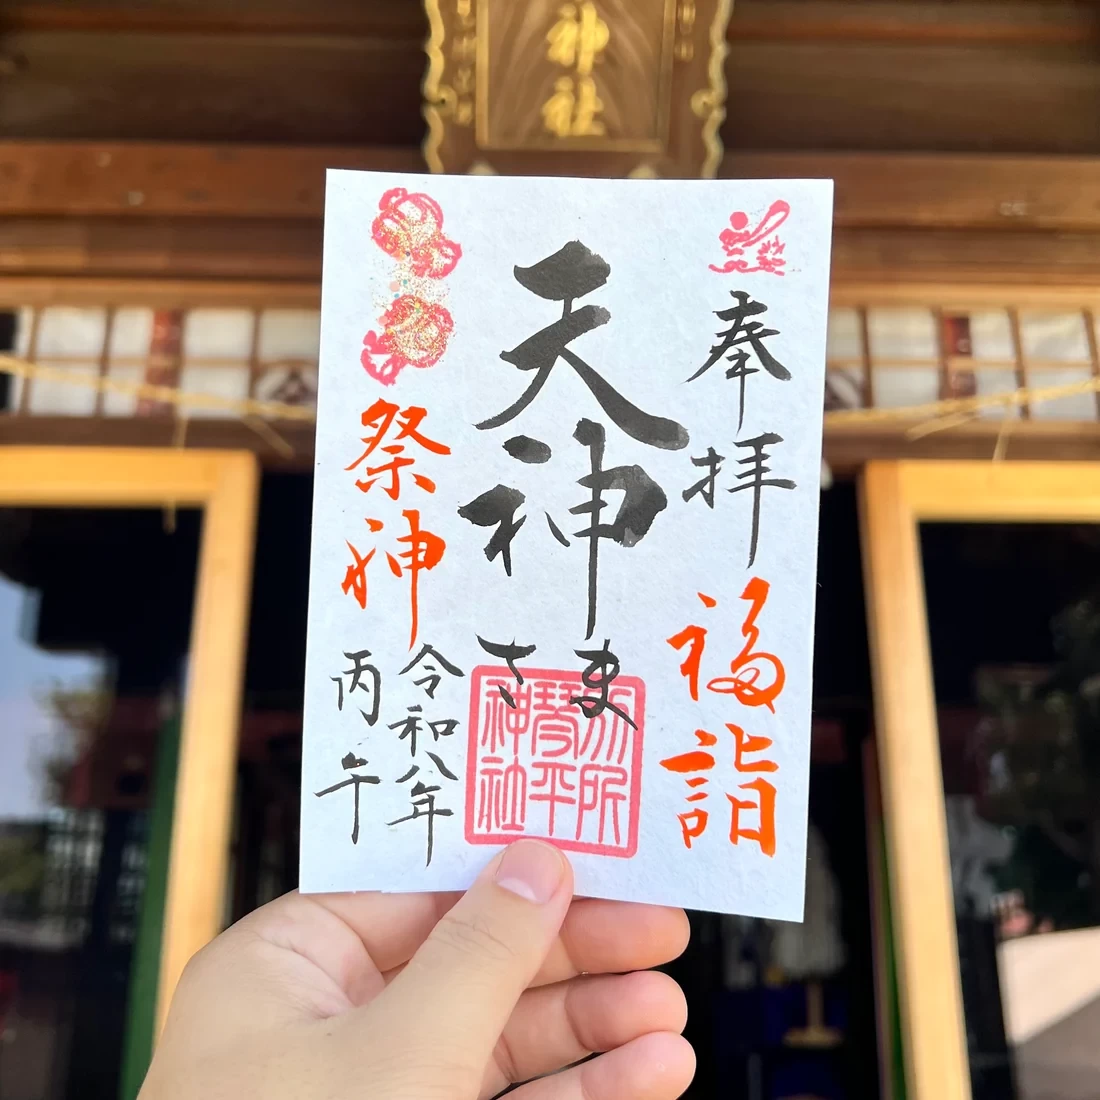 神社
奉拝
福詣
天神さま
別所
琴平
神社
祭神
令和八年
丙午